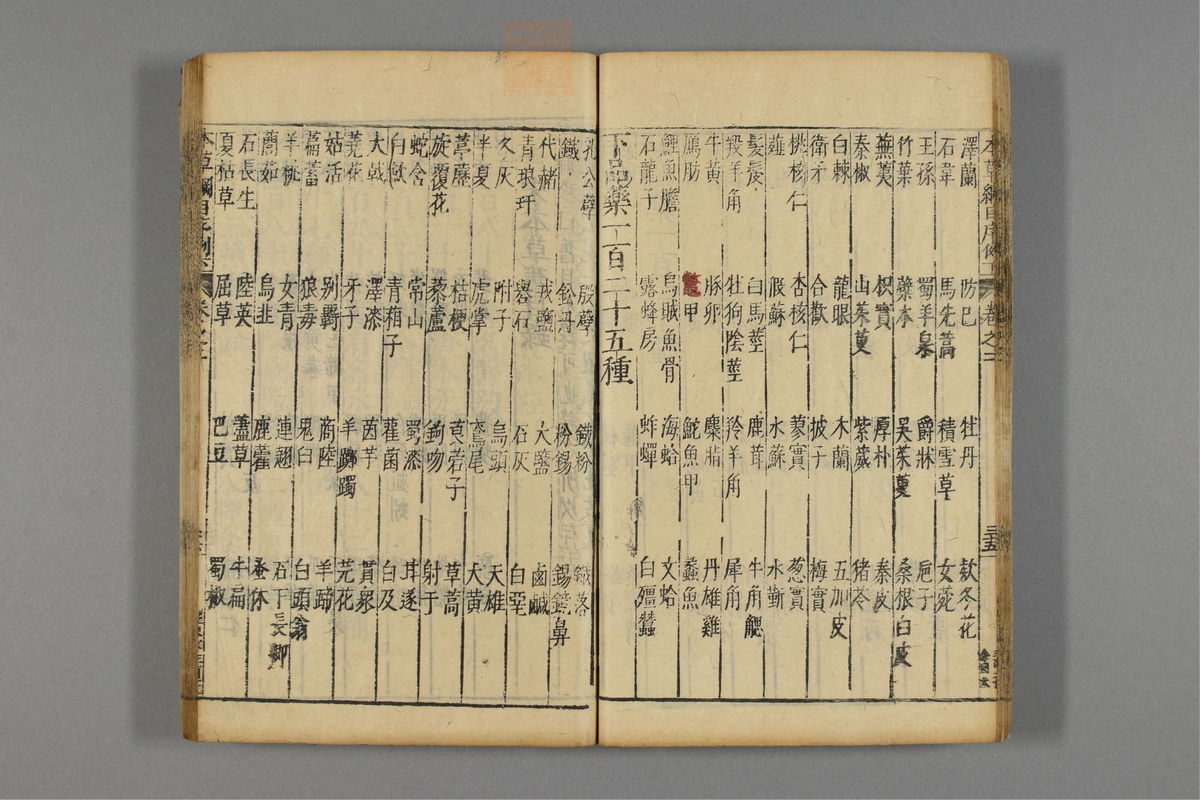 澤蘭 防巳 牡丹 款冬花
石韋 馬先蒿 積雪草 女菀
王孫 蜀羊泉 爵牀 巵子
竹葉 蘗木 吳茱萸 桑根白皮
蕪荑 枳實 厚朴 秦皮
秦椒 山茱萸 紫葳 猪苓
白棘 龍眼 木蘭 五加皮
衛矛 合歡 披子 梅實
桃核仁 杏核仁 蓼實 葱實
薤 假蘇 水蘇 水蘄
髮髲 白馬莖 鹿茸 牛角䚡
羖羊角 牡狗陰莖 羚羊角 犀角
牛黃 豚卵 麋脂 丹雄雞
鴈肪 鱉甲 鮀魚甲 蠡魚
鯉魚膽 烏賊魚骨 海蛤 文蛤
石龍子 露蜂房 蚱蟬 白殭蠶
下品藥一百二十五種
孔公孽 殷孽 鐵粉 鐵落
鐵 鉛丹 粉錫 錫鏡鼻
代赭 戎鹽 大鹽 鹵鹹
青琅玕 礜石 石灰 白堊
冬灰 附子 烏頭 天雄
半夏 虎掌 鳶尾 大黃
葶藶 桔梗 莨菪子 草蒿
旋覆花 藜蘆 鉤吻 射干
蛇含 常山 蜀漆 甘遂
白斂 青葙子 雚菌 白及
大戟 澤漆 茵芋 貫衆
蕘花 牙子 羊躑躅 芫花
姑活 別羇 商陸 羊蹄
萹蓄 狼毒 鬼臼 白頭翁
羊桃 女青 連翹 石下長卿
䕡茹 烏韭 鹿藿 蚤休
石長生 陸英 藎草 牛扁
夏枯草 屈草 巴豆 蜀椒
本草綱目序例上 卷之二